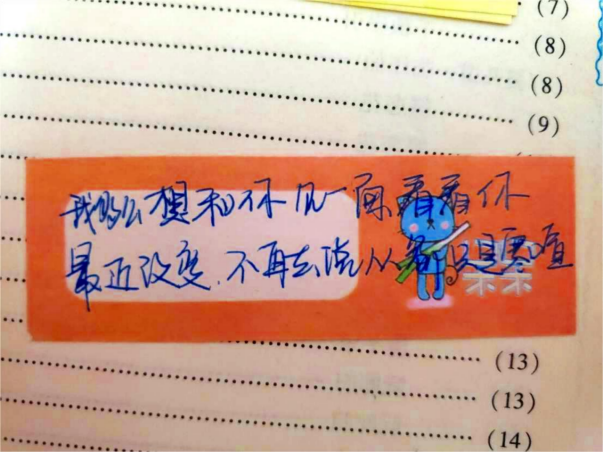 (7)
(8)
(8)
(9)
我多么想和你见一面看看你
最近改变.不再去说从前只是寒喧
呆呆
(13)
(13)
(14)